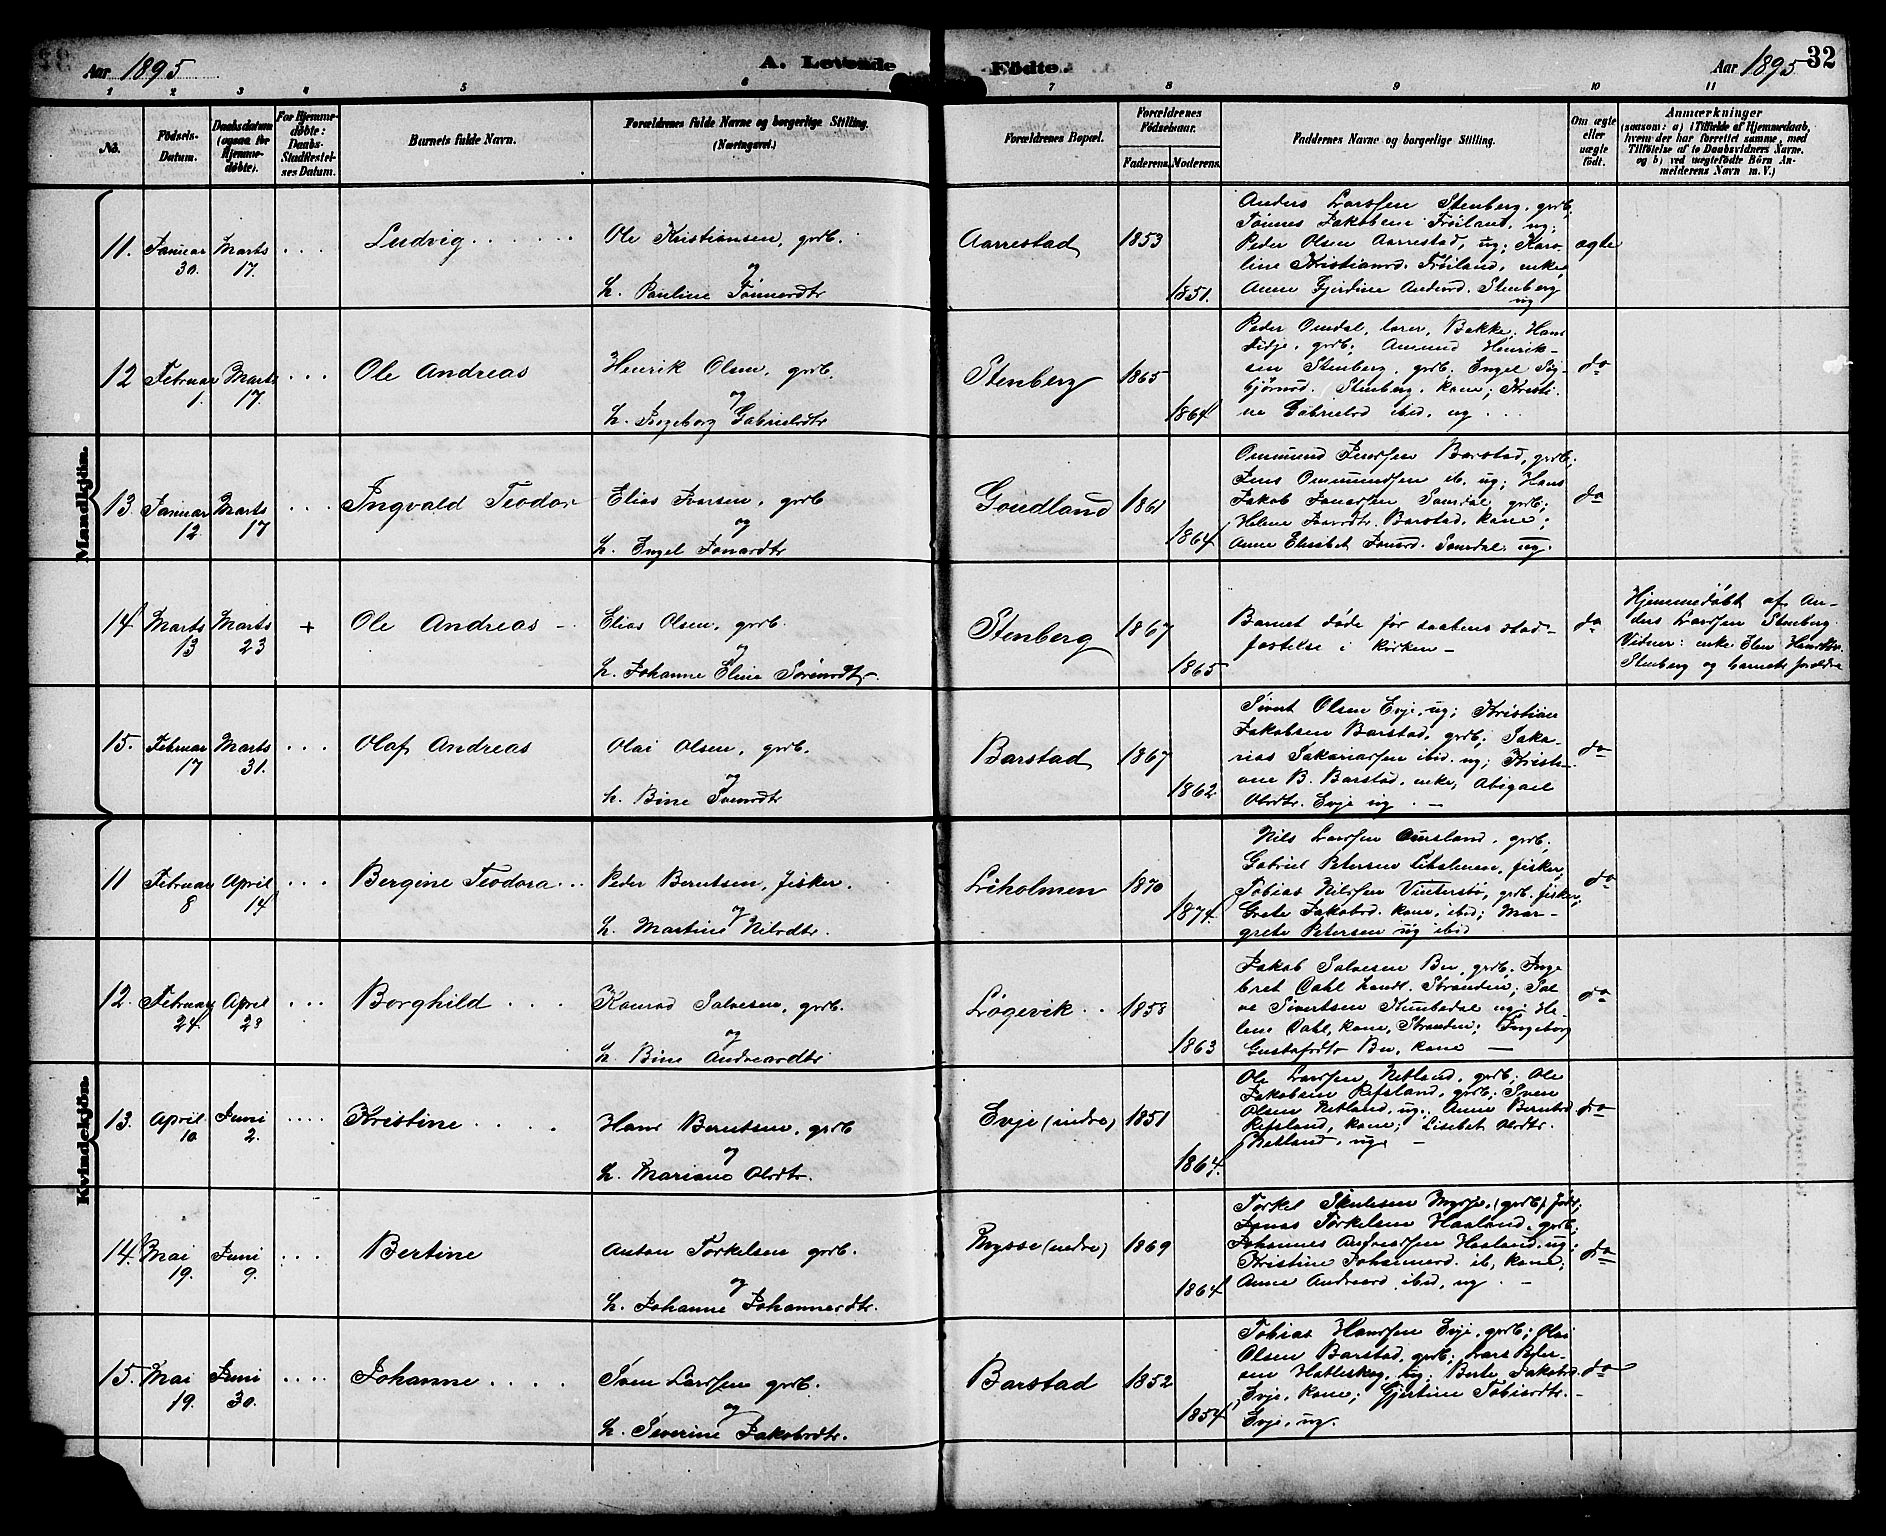 Aar 1895
A. Levende
Fødte.
Aar 1895
32
1 2 3 4 5 6 7 8 9 10 11
No.
Fødsels-
Datum.
Daabsdatum
(ogsaa for
Hjemme-
døbte).
For Hjemme-
døbte:
Daabs-
Stadfæstel-
ses Datum.
Barnets fulde Navn.
Forældrenes fulde Navne og borgerlige Stilling.
(Næringsvei.)
Forældrenes Bopæl.
Forældrenes
Fødselsaar.
Faderens.
Moderens.
Faddernes Navne og borgerlige Stilling.
Om ægte
eller
uægte
født.
Anmærkninger
(saasom: a) i Tilfælde af Hjemmedaab,
hvem der har forrettet samme, med
Tilføielse af to Daabsvidners Navne.
og b) ved uægtefødte Børn An-
melderens Navn m. V.)
Mandkjøn.
11. Januar 30. Marts 17. Ludvig
Ole Kristiansen, grdb.
og
h. Pauline Tønnesdtr
Aarrestad 1853 1851.
Anders Larssen Stenberg, grdb,
Tønnes Jakobsen Frøiland, ug;
Peder Olsen Aarrestad, ug; Karo-
line Kristiansd. Frøiland, enke,
Anne Gjerdine Andersd. Stenberg
ug
ægte
12 Februar 1. Marts 17. Ole Andreas
Henrik Olsen, grdb.
og
h. Ingeborg Gabrielsdtr
Stenberg 1865 1864
Peder Omdal, lærer, Bakke; Hans
Fidje, grdb; Amund Henrik-
sen Stenberg, grdb. Engel Sig-
bjørnsd. Stenberg, kone; Kristi-
ne Gabrielsd ibid, ug
do
13. Januar 12. Marts 17 Ingvald Teodor
Elias Ivarsen, grdb
og
h. Engel Jonasdtr
Goudland 1861 1864
Ommund Jenssen Barstad, grdb;
Jens Ommundsen ib, ug; Hans
Jakob Jonassen, grdb;
Helene Barstad, kone;
Anne Elisabet Jonasd. ug.
do
14 Marts 13 Marts 23 + Ole Andreas
Elias Olsen, grdb.
og
h. Johanne Eline Sørensdtr.
Stenberg 1867 1865
Barnet døde før daabens stad-
fæstelse i kirken
do
Hjemmedøbt af An-
ders Larssen Stenberg.
Vidner: enke Elen
Stenberg og barnets forældre
15. Februar 17 Marts 31. Olaf Andreas
Olai Olsen, grdb.
og
h. Bine
Barstad 1867 1862
Sivert Olsen Evje, ug; Kristian
Jakobsen Barstad, grdb; Saka-
rias Sakariassen ibid. ug; Kristi-
ane B. Barstad, enke, Abigael
Olsdtr. Evje ug
do
Kvindekjøn.
11 Februar 8 April 14 Bergine Teodora
Peder Berntsen, fisker.
og
h. Martine Nilsdtr.
Løholmen 1870 1874.
Nils Larssen, grdb,
Gabriel Petersen, fisker,
Tobias Nilssen Vinterstø, grdb. fisker,
Grete Jakobsd. kone, ibid; Mar-
grete Petersen ug ibid
do
12. Februar 24. April 28 Borghild
Konrad Salvesen, grdb.
og
h. Bine Andreasdtr
Løgevik 1858 1863
Jakob Salvesen Bu, grdb. Inge
bret Dahl Landh. Stranden; Sal
ve Sivertsen ug; He-
lene Dahl, kone, Stranden; Ingeborg
Gustafsdtr Bu, kone
do
13. April 10 Juni 2. Kristine
Hans Berntsen, grdb
og
h. Mariane Olsdtr.
Evje (indre) 1851 1864.
Ole Larssen Netland, grdb; Ole
Jakobsen Refsland, grdb; Sven
Olsen Netland, ug; Anne Berntsd
Refsland, kone; Lisebet Olsdtr.
Netland, ug
do
14. Mai 19. Juni 9. Bertine
Anton Torkelsen grdb.
og
h. Johanne Johannesdtr.
Mysse (nedre) 1869 1864
Torkel, (grdb) føde;
Jonas Torkelsen Haaland, grdb,
Johannes Andreassen Haaland, ug;
Kristine Johannesd. ib, kone;
Anne Andreasd ibid, ug
do
15. Mai 19. Juni 30. Johanne
Sven Larssen grdb.
og
h. Severine Jakobsdtr.
Barstad 1852 1854
Tobias Hanssen Evje, grdb; Olai
Olsen Barstad, grdb; Lars Peter-
sen Hatleskog, ug; Berte Jakobsd
Evje, kone; Gjertine Tobiasdtr.
Evje, ug.
do